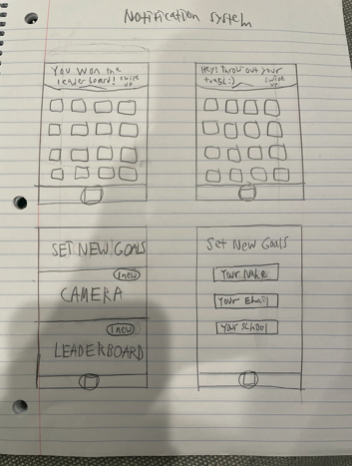 Notification System
You won the
leaderboard! swipe
up
Hey! Throw out your
trash:)
swipe
up
SET NEW GOALS
1 new
CAMERA
1 new
LEADERBOARD
Set New Goals
Your Name
Your Email
Your School